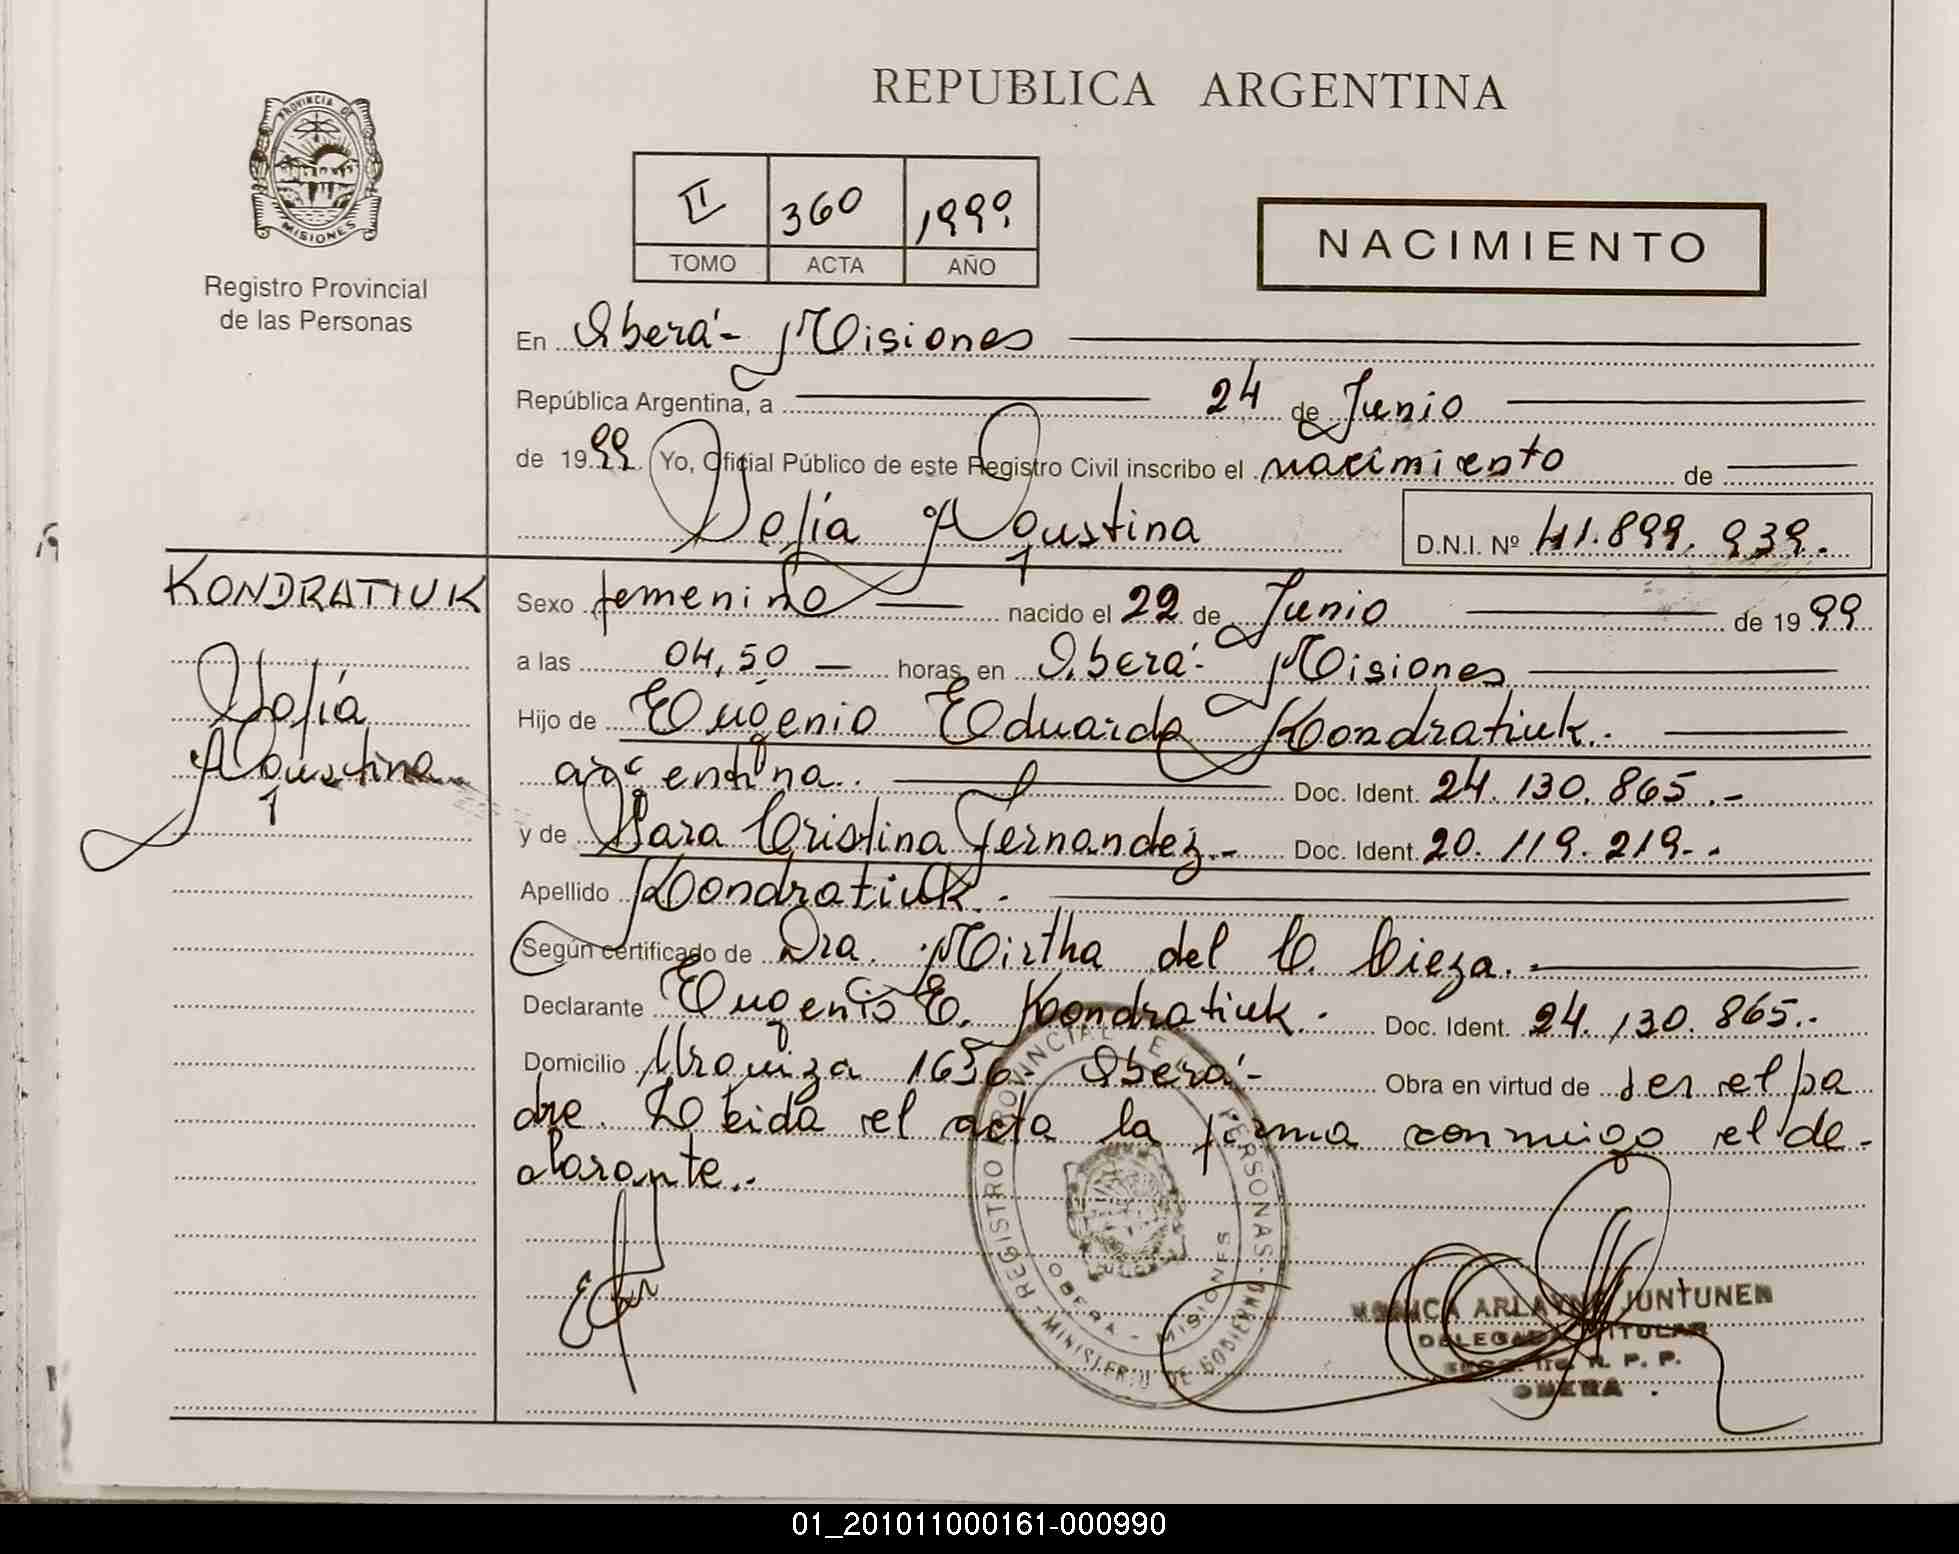 PROVINCIA DE
MISIONES
Registro Provincial
de las Personas
REPUBLICA ARGENTINA
II 360 1999
TOMO ACTA AÑO
NACIMIENTO
En Oberá- Misiones
República Argentina, a 24 de Junio
de 1999 Yo, Oficial Público de este Registro Civil inscribo el nacimiento de
Sofía Agustina D.N.I. Nº 41.899.939.
KONDRATIUK
Sofía
Agustina
Sexo femenino nacido el 22 de Junio de 1999
a las 04,50 horas en Oberá- Misiones
Hijo de Eugenio Eduardo Kondratiuk.
argentina. Doc. Ident. 24.130.865.-
y de Sara Cristina Fernandez.- Doc. Ident. 20.119.219-.
Apellido Kondratiuk.
Según certificado de Dra. Mirtha del C. Cieza.
Declarante Eugenio E. Kondratiuk. Doc. Ident. 24.130.865.-
Domicilio Urquiza 1656- Oberá- Obra en virtud de ser el pa
dre. Leida el acta la firma conmigo el de-
clarante.-
REGISTRO PROVINCIAL DE LAS PERSONAS - MINISTERIO DE GOBIERNO
OBERA - MISIONES
MONICA ARLAYNE JUNTUNEN
DELEGADA TITULAR
R. P. P.
OBERA
01_201011000161-000990